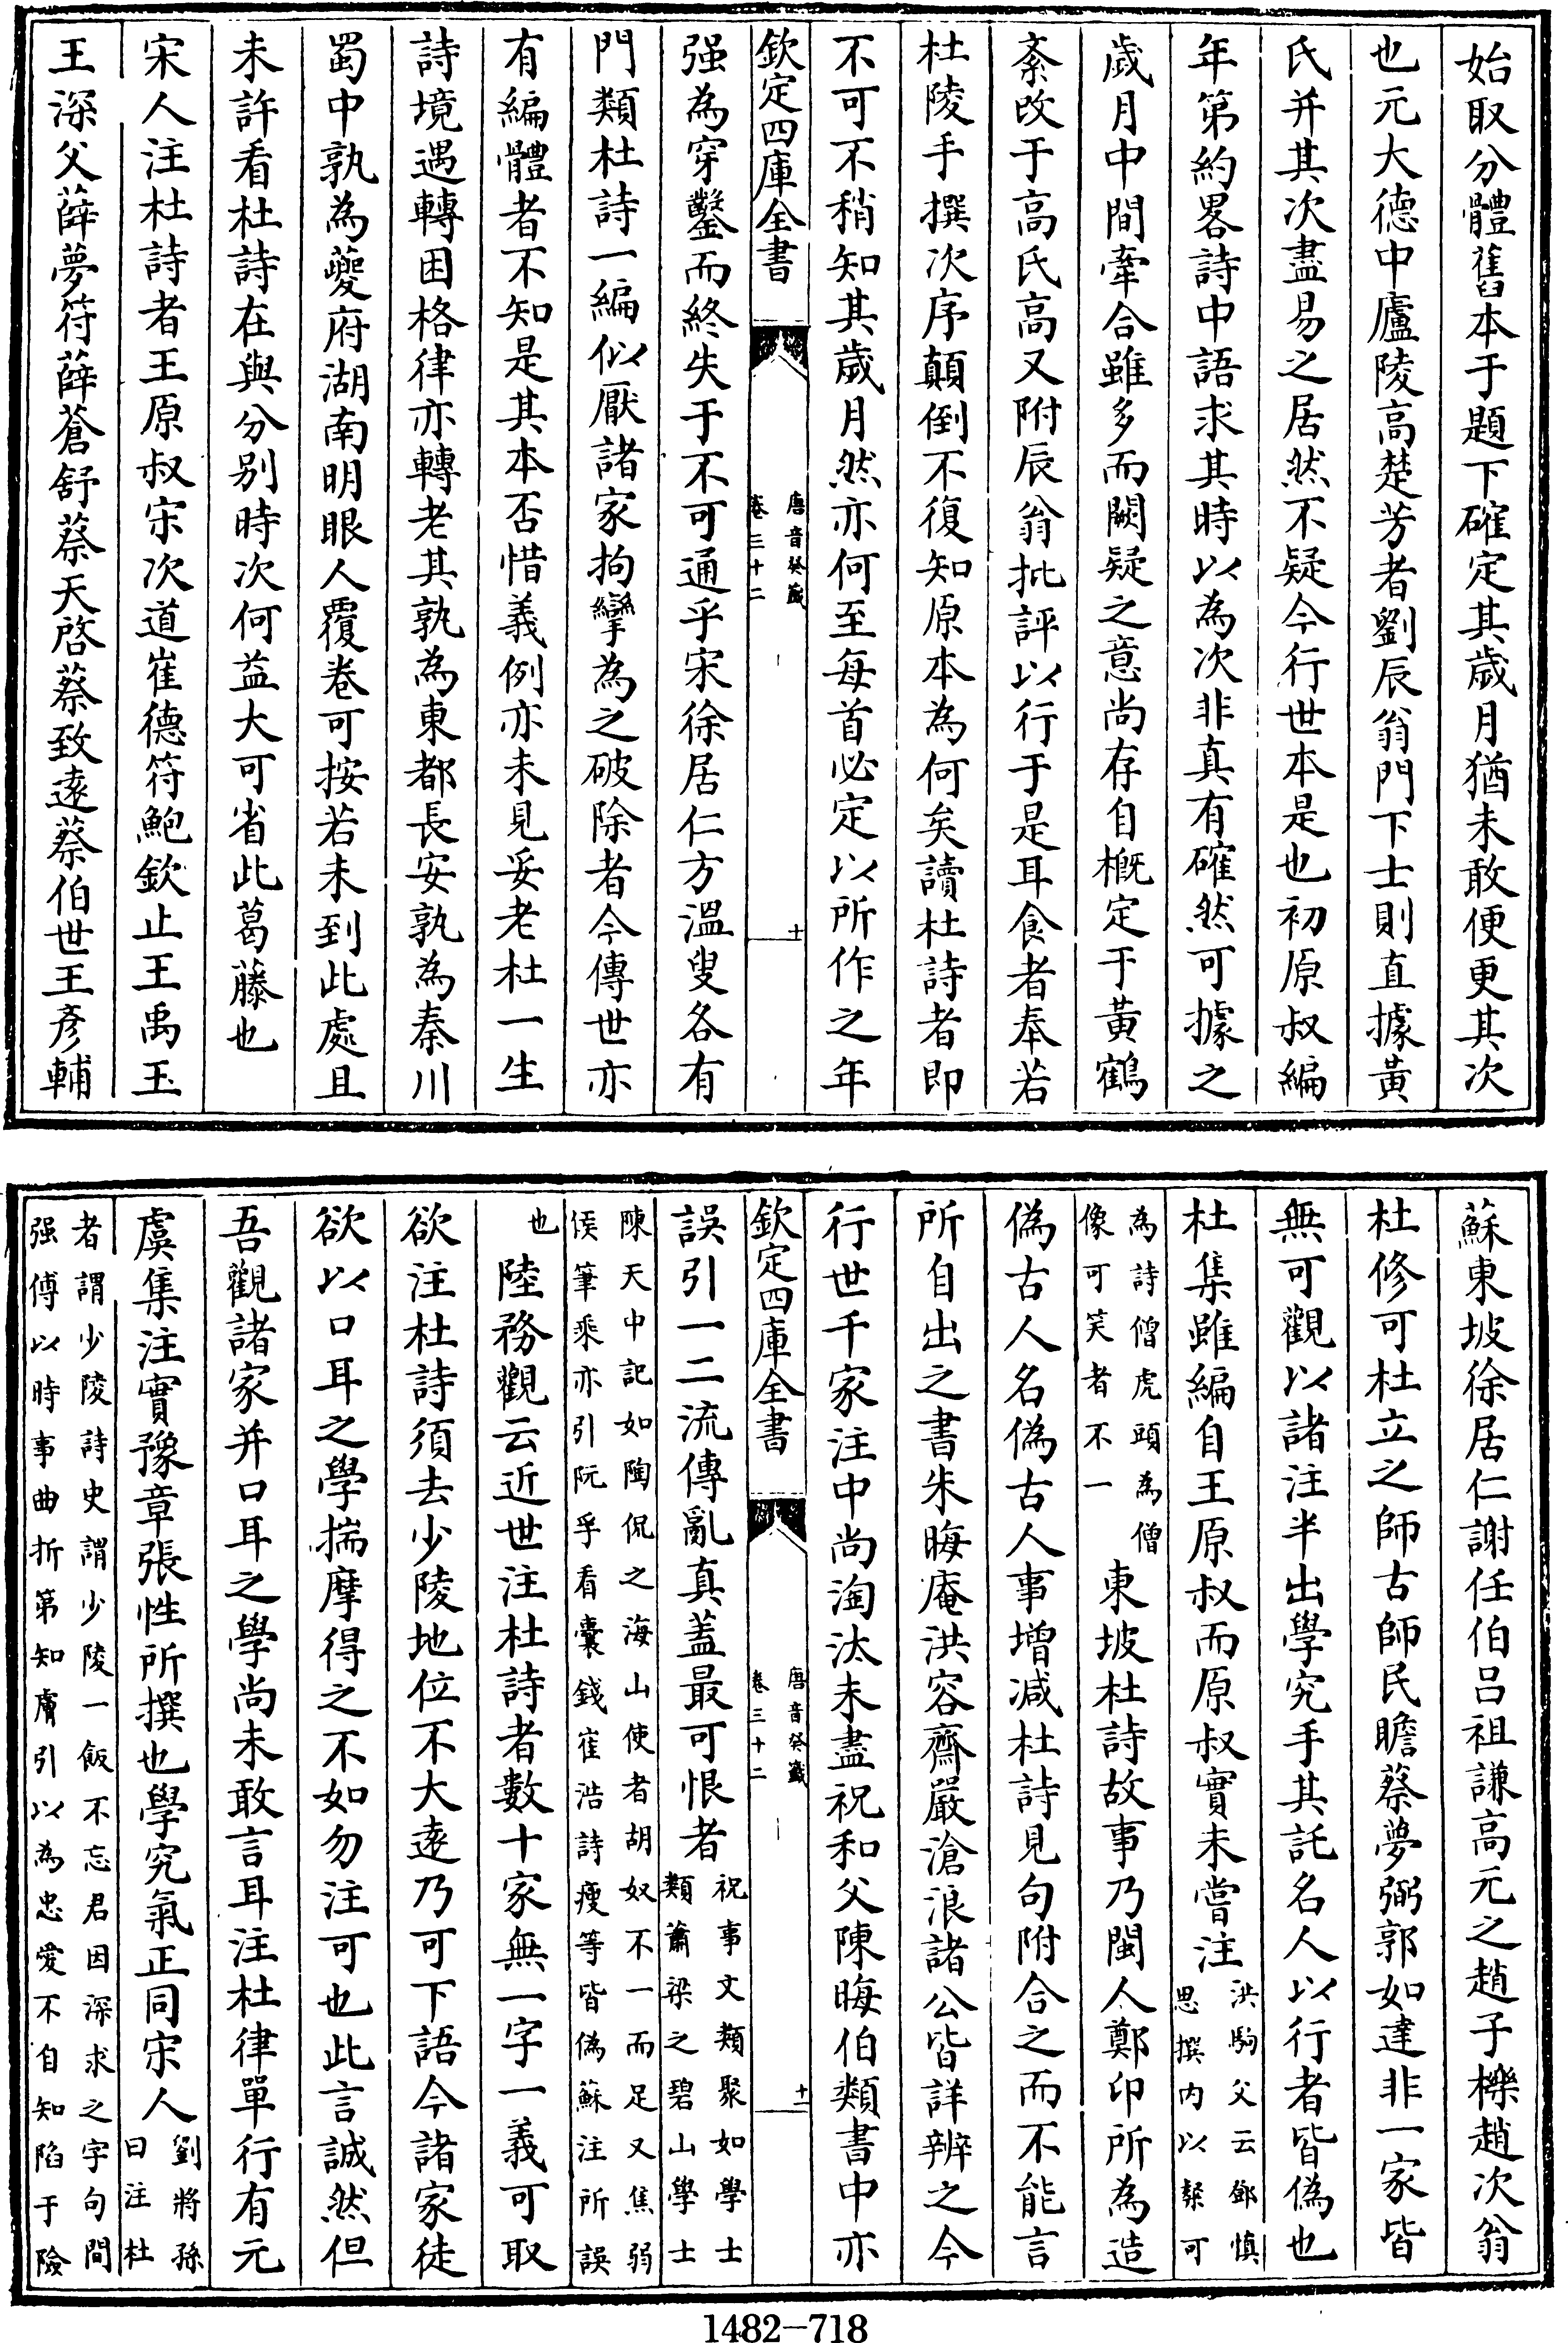 始取分體舊本于題下確定其歲月猶未敢便更其次
也元大德中廬陵高楚芳者劉辰翁門下士則直據黃
氏并其次盡易之居然不疑今行世本是也初原叔編
年第約畧詩中語求其時以為次非真有確然可據之
歲月中間牽合雖多而闕疑之意尚存自概定于黃鶴
紊改于高氏高又附辰翁批評以行于是耳食者奉若
杜陵手撰次序顛倒不復知原本為何矣讀杜詩者即
不可不稍知其歲月然亦何至每首必定以所作之年
欽定四庫全書
唐音癸籤
卷三十二
十一
强為穿鑿而終失于不可通乎宋徐居仁方溫叟各有
門類杜詩一編似厭諸家拘攣為之破除者今傳世亦
有編體者不知是其本否惜義例亦未見妥老杜一生
詩境遇轉困格律亦轉老其孰為東都長安孰為秦川
蜀中孰為夔府湖南明眼人覆卷可按若未到此處且
未許看杜詩在與分别時次何益大可省此葛藤也
宋人注杜詩者王原叔宋次道崔德符鮑欽止王禹玉
王深父薛夢符薛蒼舒蔡天啓蔡致遠蔡伯世王彥輔
蘇東坡徐居仁謝任伯呂祖謙高元之趙子櫟趙次翁
杜修可杜立之師古師民瞻蔡夢弼郭如達非一家皆
無可觀以諸注半出學究手其託名人以行者皆偽也
杜集雖編自王原叔而原叔實未嘗注
洪駒父云鄧慎
思撰内以㮣可
為詩僧虎頭為僧
像可笑者不一
東坡杜詩故事乃閩人鄭卬所為造
偽古人名偽古人事增减杜詩見句附合之而不能言
所自出之書朱晦庵洪容齋嚴滄浪諸公皆詳辨之今
行世千家注中尚淘汰未盡祝和父陳晦伯類書中亦
欽定四庫全書
唐音癸籤
卷三十二
十二
誤引一二流傳亂真蓋最可恨者
祝事文類聚如學士
類蕭梁之碧山學士
陳天中記如陶侃之海山使者胡奴不一而足又焦弱
侯筆乘亦引阮孚看囊錢崔浩詩瘦等皆偽蘇注所誤
也
陸務觀云近世注杜詩者數十家無一字一義可取
欲注杜詩須去少陵地位不大遠乃可下語今諸家徒
欲以口耳之學揣摩得之不如勿注可也此言誠然但
吾觀諸家并口耳之學尚未敢言耳注杜律單行有元
虞集注實豫章張性所撰也學究氣正同宋人
劉將孫
曰注杜
者謂少陵詩史謂少陵一飯不忘君因深求之字句間
强傅以時事曲折第知膚引以為忠愛不自知陷于險
1482-718